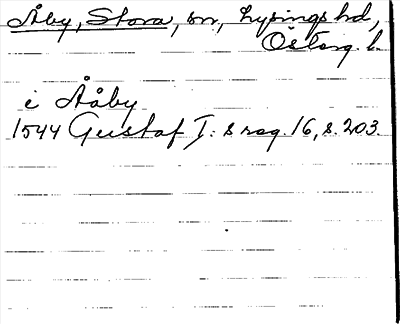 Åby, Stora, sn, Lysings hd,
Österg. l.
i Ååby
1544 Gustaf I:s reg. 16, s. 203.